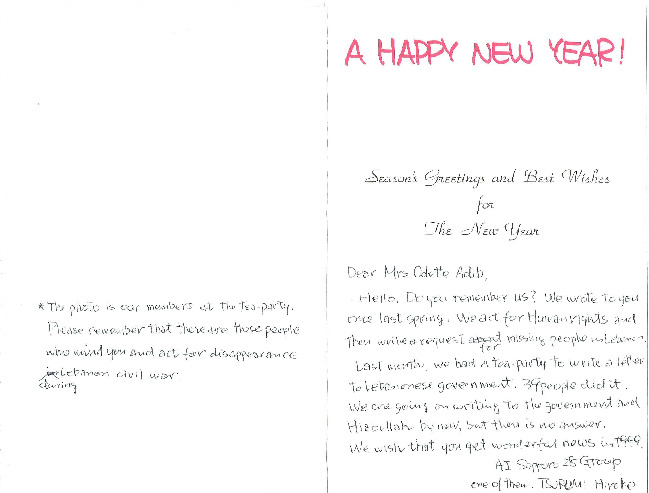 A HAPPY NEW YEAR!
Season's Greetings and Best Wishes
for
The New Year
Dear Mrs Odette Adib,
Hello. Do you remember us? We wrote to you
once last spring. We act for Human rights and
then write a request for missing people in Lebanon.
Last month, we had a tea-party to write a letter
to Lebanonese government. 39 people did it.
We are going on writing to the government and
Hizbullah by now, but there is no answer.
We wish that you get wonderful news in 1999.
AI 25 Group
one of them. Hiroko
* The photo is our members at the tea-party.
Please remember that there are those people
who mind you and act for disappearance
during Lebanon civil war